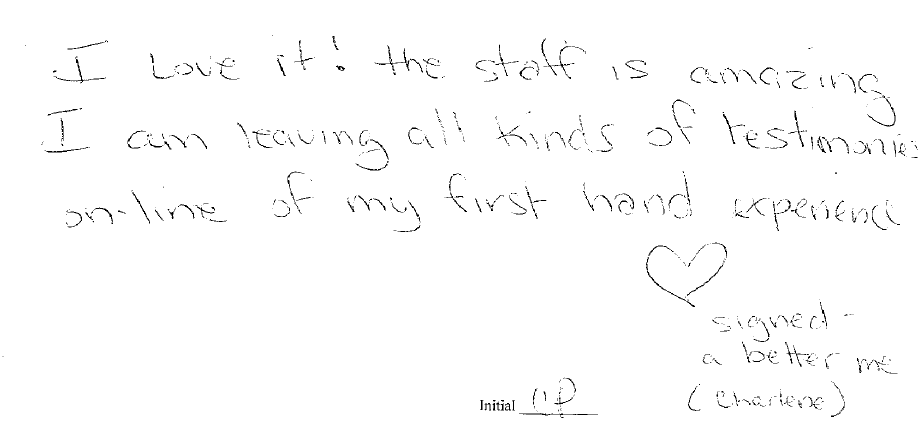 I Love it! the staff is amazing
I am leaving all kinds of testimonies
on-line of my first hand experience
signed -
a better me
(Charlene)
Initial CP